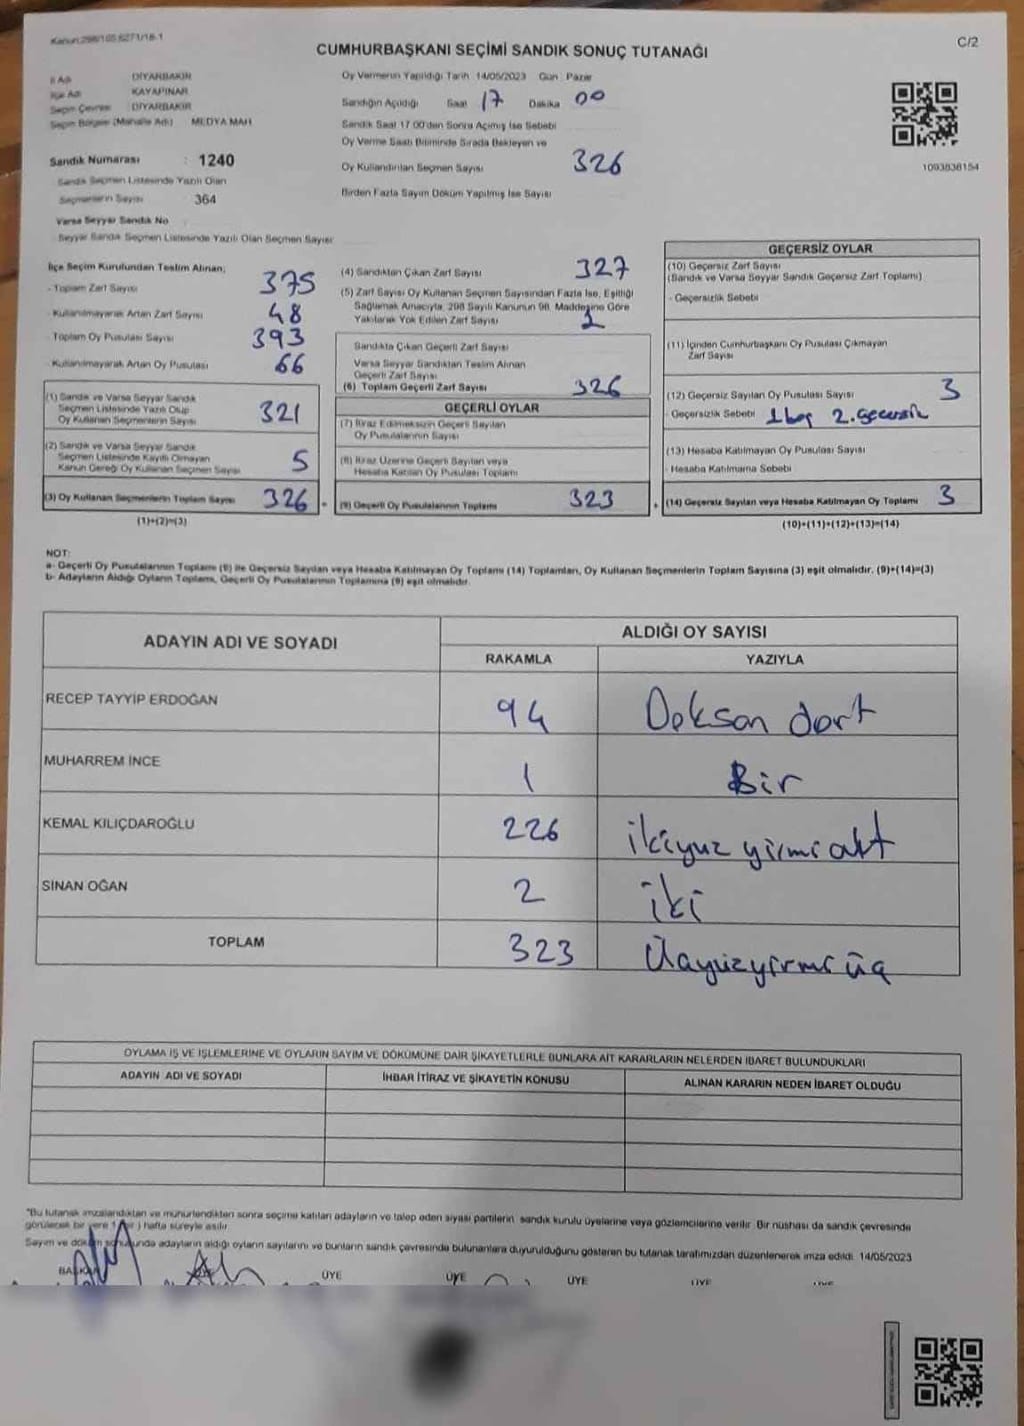 Kanun:298/105 6271/18-1
C/2
CUMHURBAŞKANI SEÇİMİ SANDIK SONUÇ TUTANAĞI
İl Adı DİYARBAKIR
İlçe Adı KAYAPINAR
Seçim Çevresi DİYARBAKIR
Seçim Bölgesi (Mahalle Adı) MEDYA MAH
Sandık Numarası : 1240
Sandık Seçmen Listesinde Yazılı Olan
Seçmenlerin Sayısı 364
Varsa Seyyar Sandık No
Seyyar Sandık Seçmen Listesinde Yazılı Olan Seçmen Sayısı
Oy Vermenin Yapıldığı Tarih 14/05/2023 Gün : Pazar
Sandığın Açıldığı Saat 17 Dakika 00
Sandık Saat 17.00'den Sonra Açılmış İse Sebebi
Oy Verme Saati Bitiminde Sırada Bekleyen ve
Oy Kullandırılan Seçmen Sayısı 326
Birden Fazla Sayım Döküm Yapılmış İse Sayısı
1093838154
İlçe Seçim Kurulundan Teslim Alınan;
- Toplam Zarf Sayısı 375
- Kullanılmayarak Artan Zarf Sayısı 48
- Toplam Oy Pusulası Sayısı 393
- Kullanılmayarak Artan Oy Pusulası 66
(1) Sandık ve Varsa Seyyar Sandık
Seçmen Listesinde Yazılı Olup
Oy Kullanan Seçmenlerin Sayısı 321
(2) Sandık ve Varsa Seyyar Sandık
Seçmen Listesinde Kayıtlı Olmayan
Kanun Gereği Oy Kullanan Seçmen Sayısı 5
(3) Oy Kullanan Seçmenlerin Toplam Sayısı 326
(1)+(2)=(3)
(4) Sandıktan Çıkan Zarf Sayısı 327
(5) Zarf Sayısı Oy Kullanan Seçmen Sayısından Fazla İse, Eşitliği
Sağlamak Amacıyla, 298 Sayılı Kanunun 98. Maddesine Göre
Yakılarak Yok Edilen Zarf Sayısı 1
Sandıkta Çıkan Geçerli Zarf Sayısı
Varsa Seyyar Sandıktan Teslim Alınan
Geçerli Zarf Sayısı
(6) Toplam Geçerli Zarf Sayısı 326
GEÇERLİ OYLAR
(7) İtiraz Edilmeksizin Geçerli Sayılan
Oy Pusulalarının Sayısı
(8) İtiraz Üzerine Geçerli Sayılan veya
Hesaba Katılan Oy Pusulası Toplamı
(9) Geçerli Oy Pusulalarının Toplamı 323
GEÇERSİZ OYLAR
(10) Geçersiz Zarf Sayısı
(Sandık ve Varsa Seyyar Sandık Geçersiz Zarf Toplamı)
- Geçersizlik Sebebi
(11) İçinden Cumhurbaşkanı Oy Pusulası Çıkmayan
Zarf Sayısı
(12) Geçersiz Sayılan Oy Pusulası Sayısı 3
- Geçersizlik Sebebi 1 boş 2. geçersiz
(13) Hesaba Katılmayan Oy Pusulası Sayısı
- Hesaba Katılmama Sebebi
(14) Geçersiz Sayılan veya Hesaba Katılmayan Oy Toplamı 3
(10)+(11)+(12)+(13)=(14)
NOT:
a- Geçerli Oy Pusulalarının Toplamı (9) ile Geçersiz Sayılan veya Hesaba Katılmayan Oy Toplamı (14) Toplamları, Oy Kullanan Seçmenlerin Toplam Sayısına (3) eşit olmalıdır. (9)+(14)=(3)
b- Adayların Aldığı Oyların Toplamı, Geçerli Oy Pusulalarının Toplamına (9) eşit olmalıdır.
ADAYIN ADI VE SOYADI
ALDIĞI OY SAYISI
RAKAMLA YAZIYLA
RECEP TAYYİP ERDOĞAN 94 Doksan dört
MUHARREM İNCE 1 Bir
KEMAL KILIÇDAROĞLU 226 ikiyüz yirmi altı
SİNAN OĞAN 2 iki
TOPLAM 323 Üçyüzyirmi üç
OYLAMA İŞ VE İŞLEMLERİNE VE OYLARIN SAYIM VE DÖKÜMÜNE DAİR ŞİKAYETLERLE BUNLARA AİT KARARLARIN NELERDEN İBARET BULUNDUKLARI
ADAYIN ADI VE SOYADI İHBAR İTİRAZ VE ŞİKAYETİN KONUSU ALINAN KARARIN NEDEN İBARET OLDUĞU
"Bu tutanak imzalandıktan ve mühürlendikten sonra seçime katılan adayların ve talep eden siyasi partilerin sandık kurulu üyelerine veya gözlemcilerine verilir. Bir nüshası da sandık çevresinde
görülecek bir yere 1 (bir) hafta süreyle asılır
Sayım ve döküm sonucunda adayların aldığı oyların sayılarını ve bunların sandık çevresinde bulunanlara duyurulduğunu gösteren bu tutanak tarafımızdan düzenlenerek imza edildi. 14/05/2023
BAŞKAN ÜYE ÜYE ÜYE ÜYE